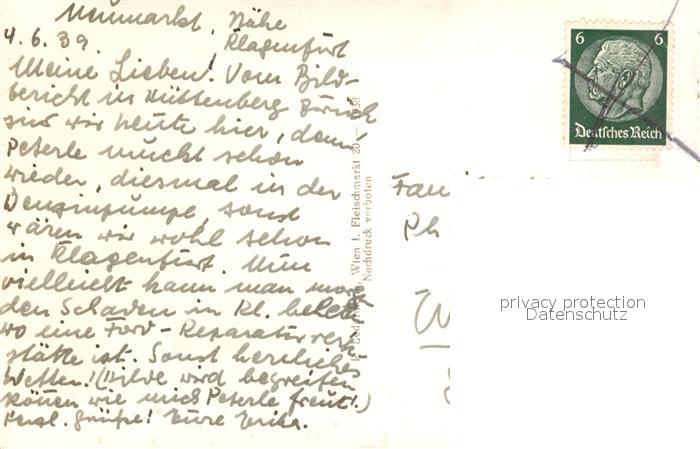 Neumarkt, Nähe
Klagenfurt
4.6.39.
Meine Lieben! Vom Bild-
bericht in Hüttenberg zurück
sind wir heute hier, denn
Peterle muckt schon
wieder, diesmal in der
Benzinpumpe, sonst
wären wir wohl schon
in Klagenfurt. Nun
vielleicht kann man morg
den Schaden in Kl. beheben
wo eine Ford-Reparaturwerk
stätte ist. Sonst herrliches
Wetter! (Hilde wird begreifen
können wie mich Peterle freut!)
Herzl. Grüße! Eure Erika.
Wien I. Fleischmarkt 20
Nachdruck verboten
6 6
Deutsches Reich
Fam
Ph
W
privacy protection
Datenschutz